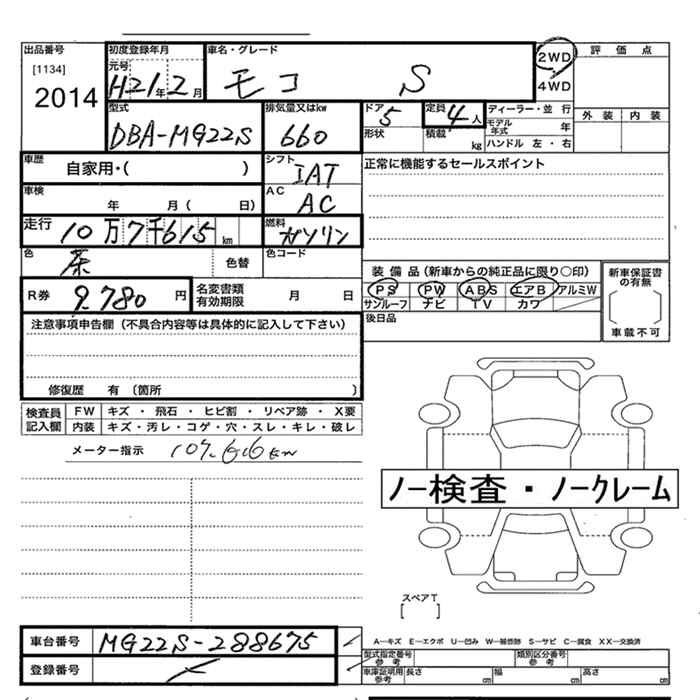 出品番号 初度登録年月 車名・グレード 2WD 評価点
[1134] 元号 4WD
2014 H21年2月 モコ S
型式 排気量又はkw ドア 定員 ディーラー・並行 外装 内装
DBA-MG22S 660 5 4人 モデル年式 年
形状 積載 kg ハンドル 左・右
車歴 自家用・( ) シフト IAT 正常に機能するセールスポイント
車検 年 月( 日) AC AC
走行 10万7千615km 燃料 ガソリン
色 茶 色替 色コード 装備品(新車からの純正品に限り〇印) 新車保証書の有無
R券 9.780円 名変書類有効期限 月 日 PS PW ABS エアB アルミW
サンルーフ ナビ TV カワ
後日品 車載不可
注意事項申告欄(不具合内容等は具体的に記入して下さい)
修復歴 有〔箇所 〕
検査員記入欄 FW キズ・飛石・ヒビ割・リペア跡・X要
内装 キズ・汚レ・コゲ・穴・スレ・キレ・破レ
メーター指示 107.616km
ノー検査・ノークレーム
スペアT
[ ]
車台番号 MG22S-288675 A-キズ E-エクボ U-凹み W-補修跡 S-サビ C-腐食 XX-交換済
登録番号 型式指定番号参考 類別区分番号参考
車庫証明用参考 長さ cm 幅 cm 高さ cm